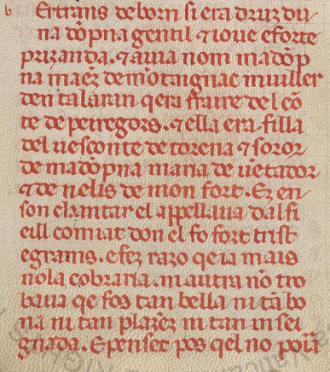 b Ertrans deborn si era druz du
na dōpna gentil & ioue e forte
prizanda. & auia nom madōp
na maēz de mōtaignac muiller
den talairan qera fraire del cō
te de peiregors. & ella era filla
del uesconte de torena & soror
de madōpna maria de uētador
& de nelis de mon fort. Ez en
son chantar el appellaua dalfi
eill comiat don el fo fort trist
e grams. e fez razo qe ia mais
nola cobraria. ni autra nō tro
baua qe fos tan bella ni tā bo
na ni tan plazēz ni tan insei
gnada. E penset pos qel no poiā